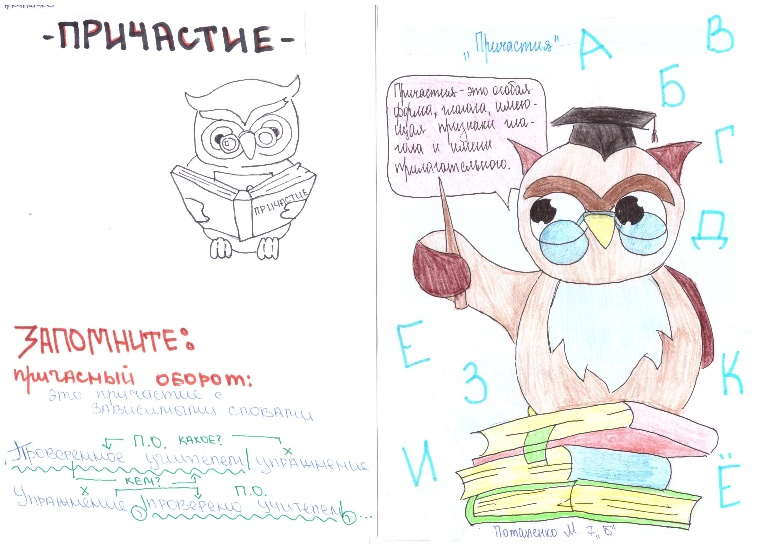 -ПРИЧАСТИЕ-
ПРИЧАСТИЕ
ЗАПОМНИТЕ:
ПРИЧАСНЫЙ ОБОРОТ:
это причастие с
зависимыми словами
П.О. КАКОЕ? х
Проверенное учителем упражнение
КЕМ?
х П.О.
Упражнение , проверено учителем , ...
„Причастия“
Причастия - это особая
форма, глагола, имею-
щая признаки гла-
гола и имени
прилагательного.
А
Б
В
Г
Д
Е
З
И
К
Ё
Потапенко М 7 „Б“